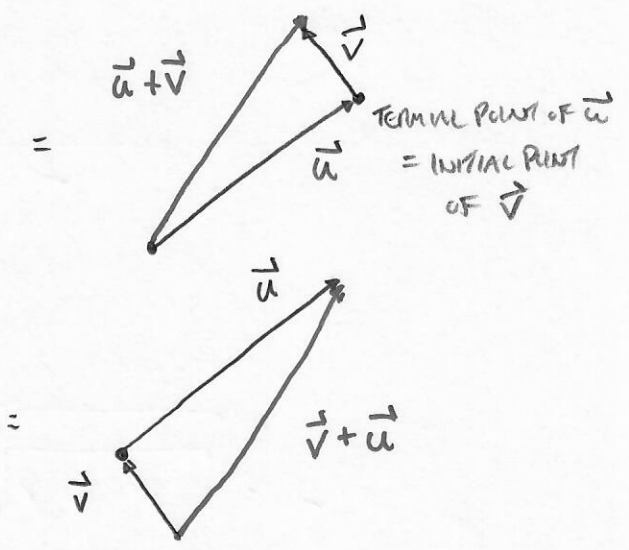 v⃗
u⃗ + v⃗
=
TERMINAL POINT OF u⃗
u⃗
= INITIAL POINT
OF v⃗
u⃗
=
v⃗ + u⃗
v⃗